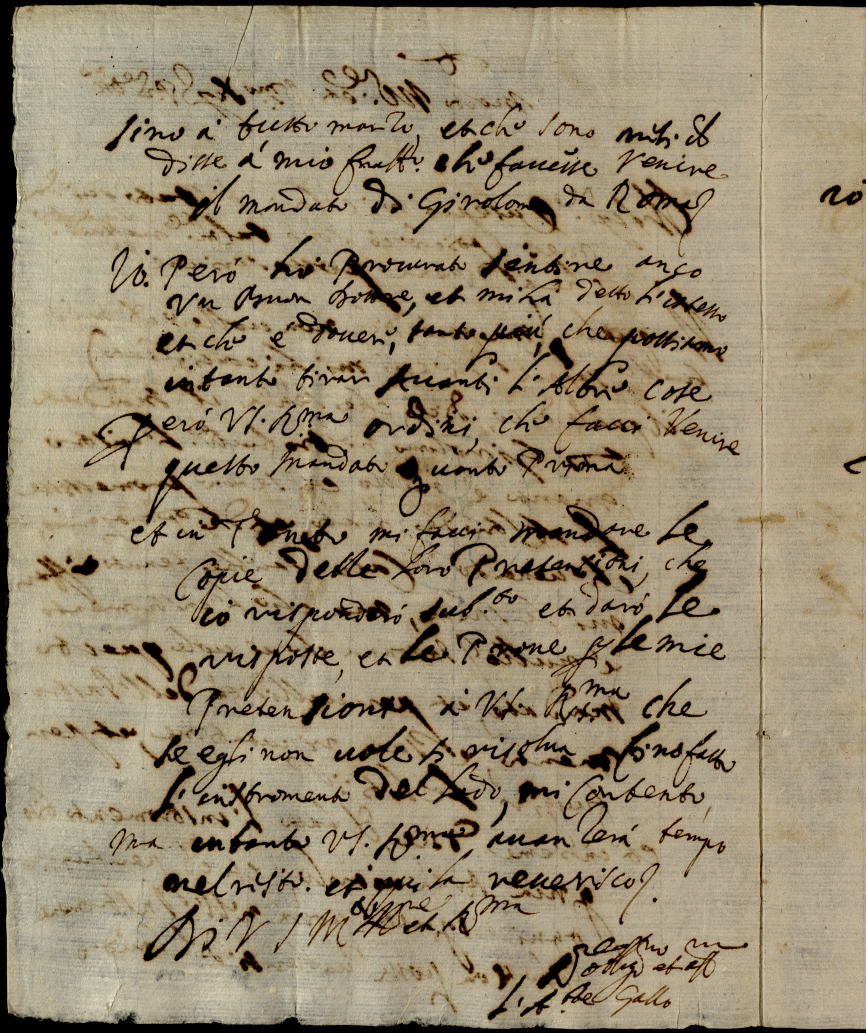 sino à tutto marzo, et che sono
disse à mio fratto. che facesse Venire
il mandato di Girolamo da Roma
Io. Però hò Procurato sentire anco
Un buon Dottore, et mi hà detto l'istesso
et che è dovere, tanto più, che possiamo
intanto tirar avanti l'Altre cose
Però V.S. Rma ordini, che facci Venire
questo Mandato quanto Prima
et in mi facci mandare le
Copie delle loro Pretensioni, che
io risponderò, sub.to et darò le
risposte, et le Prove p le mie
Pretensioni à V.S. Rma che
se egli non vole si risolva sino fatto
l'instromento del Lodo, mi Contento,
ma intanto V.S. Rma avanzerà tempo
nel resto. et qui la reverisco.
Di V S et Rma
oblig et aff
L'Ab.te Gallo
20